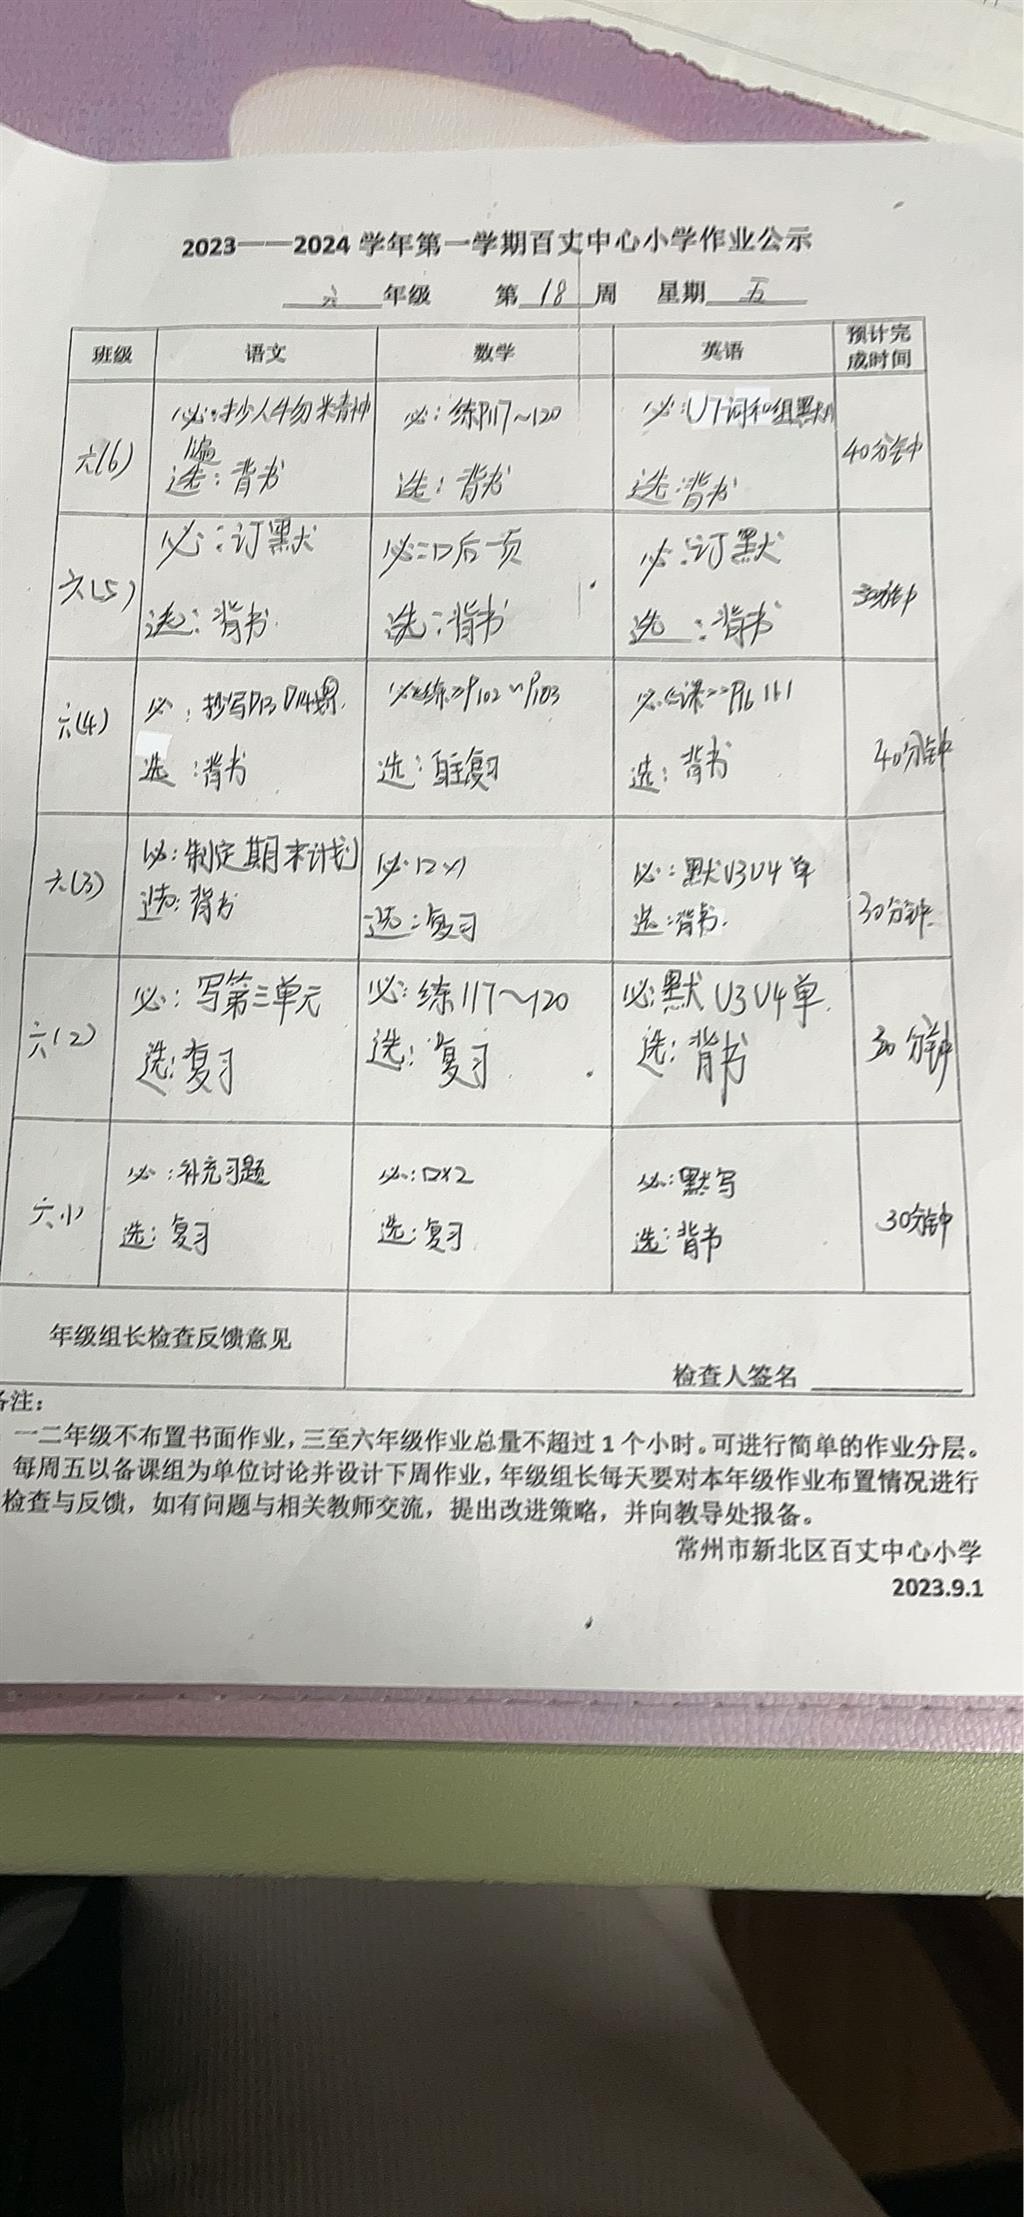 2023——2024 学年第一学期百丈中心小学作业公示
六 年级 第 18 周 星期 五
班级 语文 数学 英语 预计完成时间
六(6)
必:抄人物精神
1遍
选:背书
必:练P117~120
选:背书
必:U7词和组默
选:背书
40分钟
六(5)
必:订默
选:背书
必:口后一页
选:背书
必:订默
选:背书
30分钟
六(4)
必:抄写P13 P14
选:背书
必《练》P102~P103
选:自主复习
必《课》P16
选:背书
40分钟
六(3)
必:制定期末计划
选:背书
必:口×1
选:复习
必:默U3U4单
选:背书.
30分钟
六(2)
必:写第三单元
选:复习
必:练117~120
选:复习
必:默U3U4单.
选:背书
30分钟
六(1)
必:补充习题
选:复习
必:口×2
选:复习
必:默写
选:背书
30分钟
年级组长检查反馈意见
检查人签名
备注:
一二年级不布置书面作业,三至六年级作业总量不超过 1 个小时。可进行简单的作业分层。
每周五以备课组为单位讨论并设计下周作业,年级组长每天要对本年级作业布置情况进行
检查与反馈,如有问题与相关教师交流,提出改进策略,并向教导处报备。
常州市新北区百丈中心小学
2023.9.1